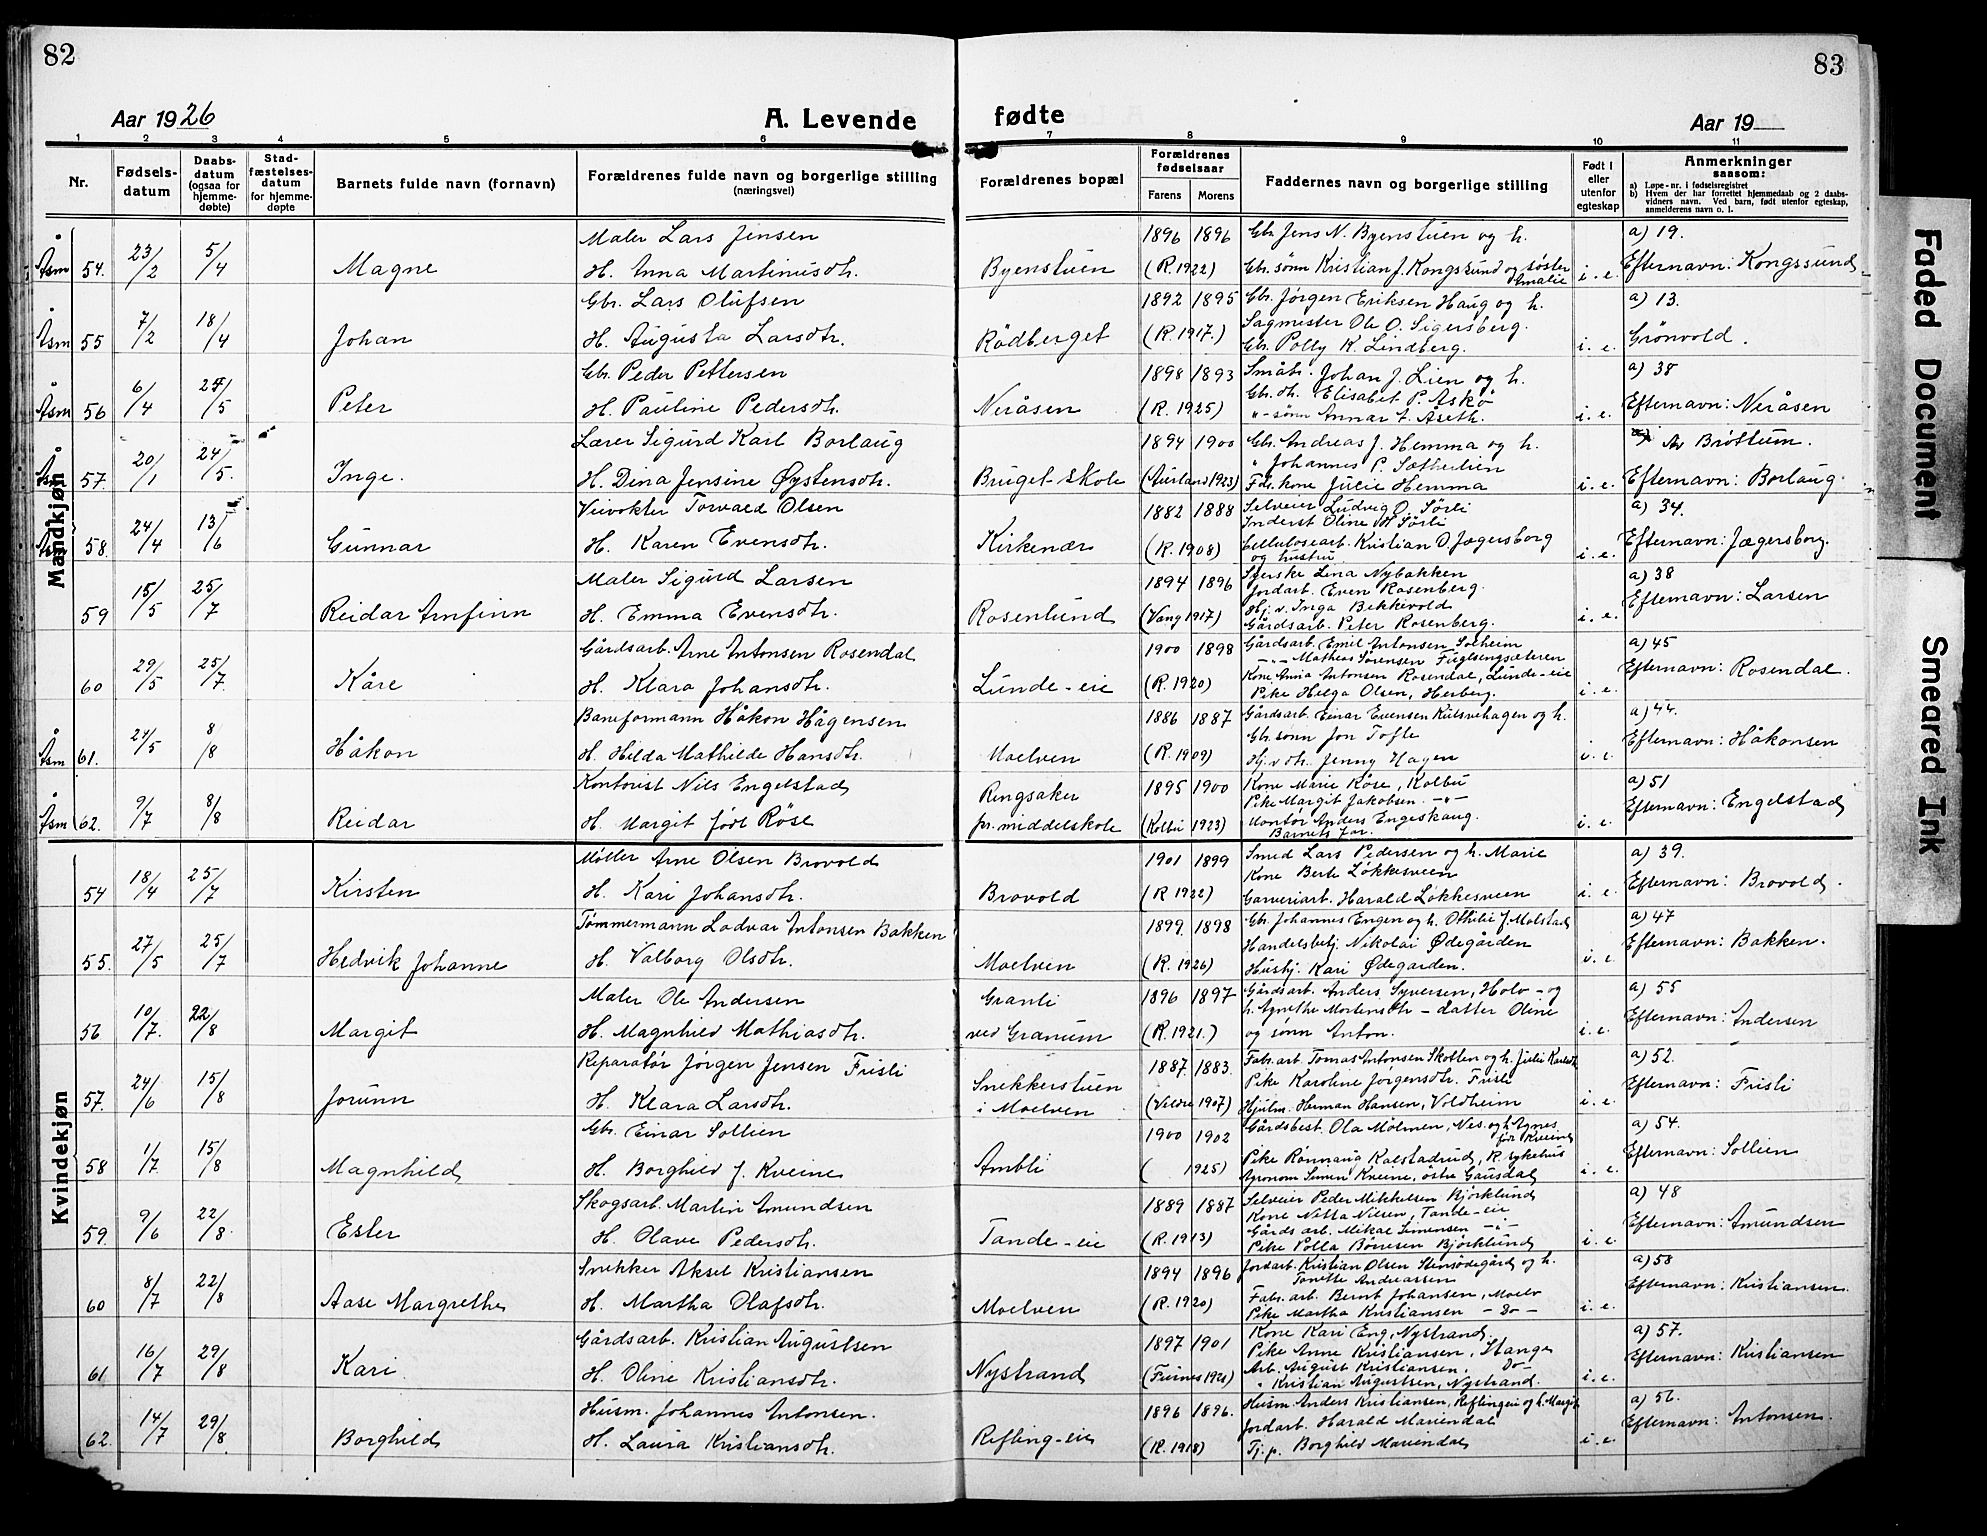 82
83
Aar 1926
A. Levende
fødte
Aar 19
1 2 3 4 5 6 7 8 9 10 11
Nr.
Fødsels-
datum
Daabs-
datum
(ogsaa for
hjemme-
døbte)
Stad-
fæstelses-
datum
for hjemme-
døpte
Barnets fulde navn (fornavn)
Forældrenes fulde navn og borgerlige stilling
(næringsvei)
Forældrenes bopæl
Forældrenes
fødselsaar
Farens Morens
Faddernes navn og borgerlige stilling
Født i
eller
utenfor
egteskap
Anmerkninger
saasom:
a) Løpe-nr. i fødselsregistret
b) Hvem der har forrettet hjemmedaab og 2 daabs-
vidners navn. Ved barn, født utenfor egteskap,
anmelderens navn o. l.
Mandkjøn
Maler Lars Jensen 1896 1896 Gbr. Jens N. Byenstuen og h. a) 19.
Åsm 54. 23/2 5/4 Magne H. Anna Martinusdtr. Byenstuen (R. 1922) Gbr. sønn Kristian J. Kongssund og søster Amalie i. e. Efternavn: Kongssund
Gbr. Lars Olufsen 1892 1895 Gbr. Jørgen Eriksen Haug og h. a) 13.
Sagmester Ole O. Sigersberg.
Åsm 55 7/2 18/4 Johan H. Augusta Larsdtr. Rödberget (R. 1917.) Gbr. Polly K. Lindberg. i. e. Grönvold.
Gbr. Peder Pettersen 1898 1893 Småbr. Johan J. Lien og h. a) 38
Gbr. dtr. Elisabet P. Askø
Åsm 56 6/4 25/5 Peter H. Pauline Pedersdtr. Neråsen (R. 1925) "-sønn Annar t. Åseth. i. e. Efternavn: Neråsen
Lærer Sigurd Karl Borlaug 1894 1900 Gbr. Andreas J. Hemma og h. Av Brøttum.
" Johannes P. Sætherlien
Åsm 57. 20/1 24/5. Inge. H. Dina Jensine Øystensdtr. Bruget skole (Aurland 1923) Fdr. kone Julie Hemma i. e. Efternavn: Borlaug.
Veivokter Torvald Olsen 1882 1888 Selveier Ludvig O. Sørli a) 34.
Inderst Oline M Sørli
58. 24/4 13/6 Gunnar H. Karen Evensdtr. Kirkenær (R. 1908) Cellulosearb. Kristian O. Jægersborg og hustru i. e. Efternavn: Jægersborg.
Maler Sigurd Larsen 1894 1896 Syerske Lina Nybakken a) 38
Jordarb. Even Rosenberg.
59 15/5 25/7 Reidar Arnfinn H. Emma Evensdtr. Rosenlund (Vang 1917) Hj.v. Inga Bekkevold i. e. Efternavn: Larsen
Gårdsarb. Peter Rosenberg.
Gårdsarb. Arne Antonsen Rosendal 1900 1898 Gårdsarb. Emil Antonsen Solheim a) 45
-"- Mathias Sørensen Fuglsengsæteren
60 29/5 25/7. Kåre H. Klara Johansdtr. Lunde-eie (R. 1920) Kone Anna Antonsen Rosendal, Lunde-eie i. e. Efternavn: Rosendal.
Pike Helga Olsen, Herberg.
Baneformann Håkon Hågensen 1886 1887 Gårdsarb. Einar Evensen Kulsvehagen og h. a) 44.
Gbr. sønn Jon Tofte
Åsm 61. 24/5 8/8 Håkon H. Hilda Mathilde Hansdtr. Moelven (R. 1909) Hj.v dtr. Jenny Hagen i. e. Efternavn: Håkonsen
Kontorist Nils Engelstad Ringsaker 1895 1900 Kone Marie Röse, Kolbu a) 51
Pike Margit Jakobsen. -"-
Åsm 62. 9/7 8/8 Reidar H. Margit født Röse pr. middelskole (Kolbu 1923) Kantor Anders Engeskaug. i. e. Efternavn: Engelstad
Barnets far.
Kvindekjøn
Møller Arne Olsen Brovold 1901 1899 Smed Lars Pedersen og h. Marie a) 39.
Kone Berte Løkkesveen
54 18/4 25/7 Kirsten H. Kari Johansdtr. Brovold (R 1922) Garveriarb. Harald Løkkesveen i. e. Efternavn: Brovold.
Tømmermann Lodvar Antonsen Bakken 1899. 1898 Gbr. Johannes Engen og h. Othilie f. Molstad a) 47
Handelsbetj. Nikolai Ødegården
55. 27/5 25/7 Hedvik Johanne H. Valborg Olsdtr. Moelven (R. 1926) Hushj. Kari Ødegarden. i. e. Efternavn: Bakken.
Maler Ole Andersen Granli 1896 1897 Gårdsarb. Anders Syversen, Holv- og a) 55
h. Agnethe Mortensdtr - datter Oline
56 10/7. 22/8 Margit H. Magnhild Mathiasdtr. ved Granum (R. 1921.) og sønn Anton. i. e. Efternavn: Andersen
Reparatør Jørgen Jensen Frisli Snekkerstuen 1887. 1883. Fabr.arb. Tomas Antonsen Skotten og h. Julie Karlsdtr a) 52.
Pike Karoline Jørgensdtr. Frisli
57. 24/6 15/8 Jorunn H. Klara Larsdtr. i Moelven (Veldre 1907) Hjulm. Herman Hansen, Voldheim i. e. Efternavn: Frisli
Gbr. Einar Sollien 1900 1902 Gårdsbest. Ola Mølmen, Nes. og h. Agnes født Kveine a) 54.
Pike Rønnaug Kalstadrud, R. sykehus
58 1/7 15/8 Magnhild H. Borghild f. Kveine Ambli ( 1925) Agronom Simen Kveine, østre Gausdal i. e. Efternavn: Sollien
Skogsarb. Martin Amundsen 1889 1887 Selveier Peder Mikkelsen Bjørklund a) 48
Kone Netta Nilsen, Tande-eie
Gårdsarb. Mikal Simensen -"-
59. 9/6 22/8. Ester H. Olave Pedersdtr. Tande-eie (R. 1913) Pike Polla Børresen Bjørklund i. e. Efternavn: Amundsen
Snekker Aksel Kristiansen 1894 1896 Jordarb. Kristian Olsen Stensødegård og h. a) 58
Tonette Andreassen
Fabr. arb. Bernt Johansen, Moelv
60 8/7 22/8 Aase Margrethe H. Martha Olafsdtr. Moelven (R. 1920) Pike Martha Kristiansen - Do - i. e. Efternavn: Kristiansen.
Gårdsarb. Kristian Augustsen 1897 1901 Kone Kari Eng, Nystrand. a) 57.
Pike Anne Kristiansen, Stange
Arb. August Kristiansen, Do-
61 16/7 29/8 Kari H. Oline Kristiansdtr. Nystrand (Furnes 1921) " Kristian Augustsen, Nystrand. i. e. Efternavn: Kristiansen
Husm. Johannes Antonsen. 1896 1896. Husm Anders Kristiansen, Reflingeie og h. Margit a) 56.
Jordarb. Harald Mariendal
62. 14/7 29/8 Borghild H. Laura Kristiansdtr. Refling-eie (R. 1918) Tj. p. Borghild Mariendal i. e. Efternavn: Antonsen.
Faded Document
Smeared Ink